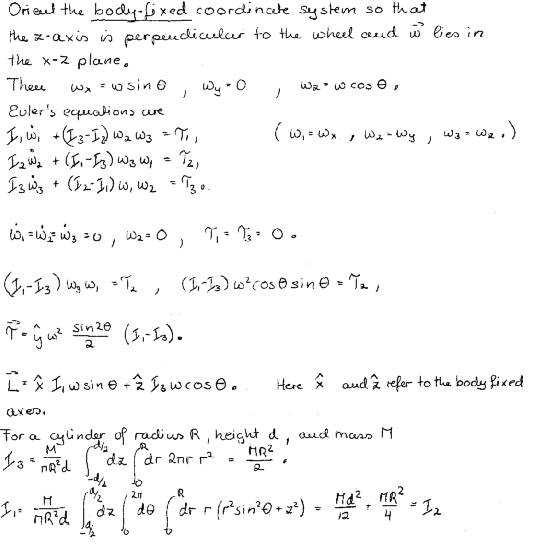 Orient the body-fixed coordinate system so that
the z-axis is perpendicular to the wheel and ω⃗ lies in
the x-z plane.
Then ωx = ω sin θ , ωy = 0 , ωz = ω cos θ .
Euler's equations are
I₁ω̇₁ + (I₃-I₂) ω₂ω₃ = τ₁, ( ω₁ = ωx , ω₂ = ωy , ω₃ = ωz .)
I₂ω̇₂ + (I₁-I₃) ω₃ω₁ = τ₂,
I₃ω̇₃ + (I₂-I₁) ω₁ω₂ = τ₃.
ω̇₁ = ω̇₂ = ω̇₃ = 0 , ω₂ = 0 , τ₁ = τ₃ = 0 .
(I₁-I₃) ω₃ω₁ = τ₂ , (I₁-I₃) ω² cos θ sin θ = τ₂ ,
τ⃗ = ŷ ω² sin2θ/2 (I₁-I₃).
L⃗ = x̂ I₁ ω sin θ + ẑ I₃ ω cos θ . Here x̂ and ẑ refer to the body fixed
axes.
For a cylinder of radius R, height d, and mass M
I₃ = M/πR²d ∫_{-d/2}^{d/2} dz ∫_0^R dr 2πr r² = MR²/2 .
I₁ = M/πR²d ∫_{-d/2}^{d/2} dz ∫_0^{2π} dθ ∫_0^R dr r (r² sin²θ + z²) = Md²/12 + MR²/4 = I₂